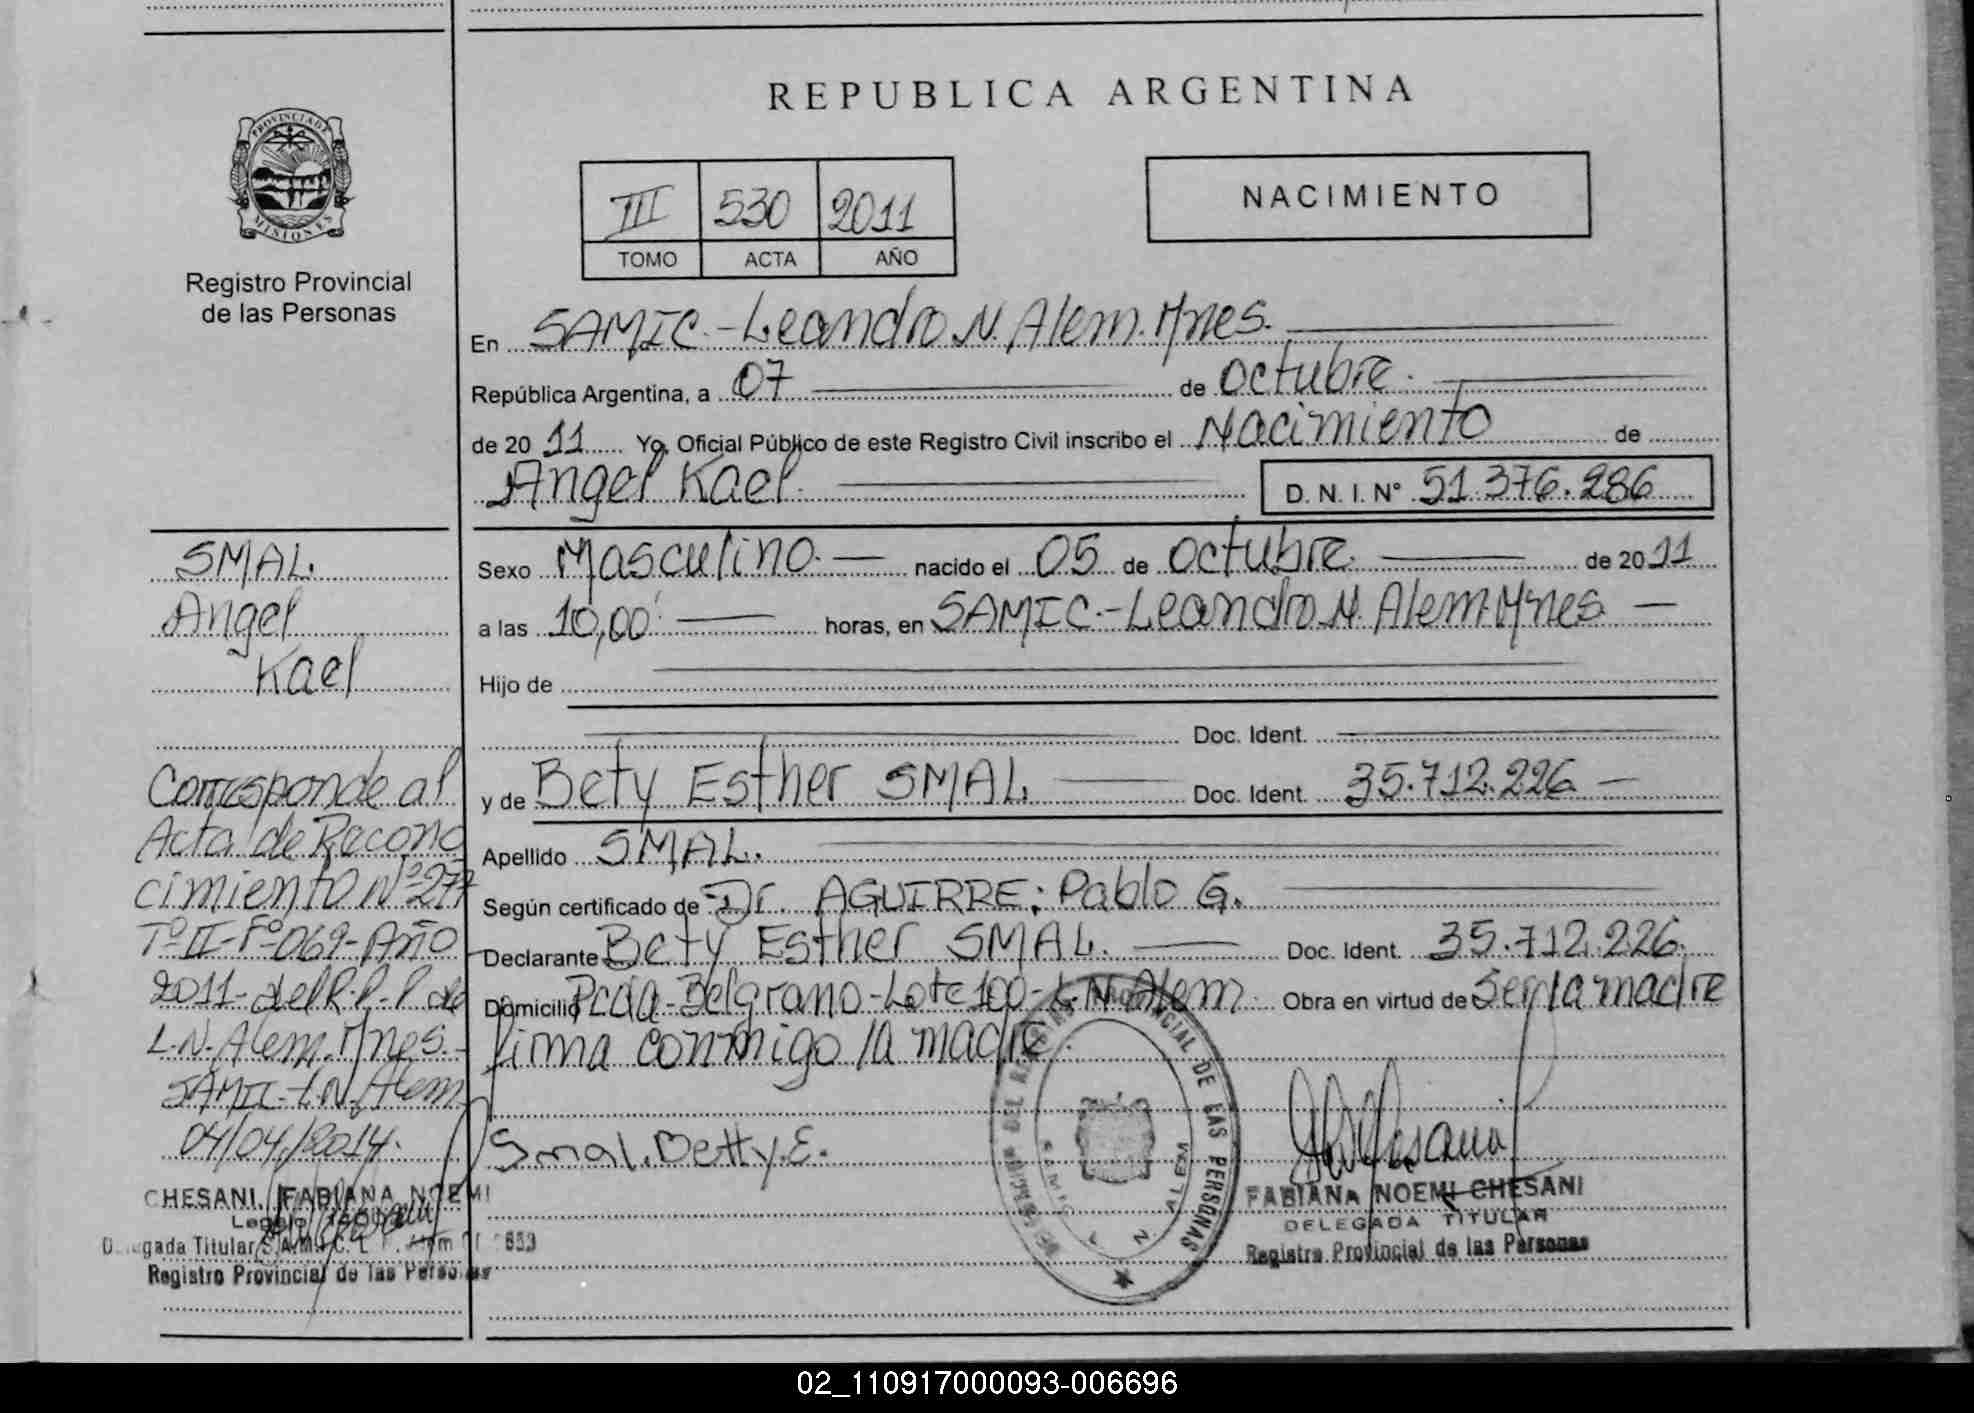 REPUBLICA ARGENTINA
PROVINCIA DE
MISIONES
Registro Provincial
de las Personas
III 530 2011
TOMO ACTA AÑO
NACIMIENTO
En SAMIC.-Leandro N. Alem. Mnes.
República Argentina, a 07 de Octubre.
de 20 11 Yo, Oficial Público de este Registro Civil inscribo el Nacimiento de
Angel Kael. D. N. I. N° 51.376.286
Sexo Masculino. nacido el 05 de Octubre. de 20 11
a las 10,00 horas, en SAMIC.-Leandro N. Alem. Mnes.
Hijo de
Doc. Ident.
y de Bety Esther SMAL. Doc. Ident. 35.712.226.
Apellido SMAL.
Según certificado de Dr. AGUIRRE; Pablo G.
Declarante Bety Esther SMAL. Doc. Ident. 35.712.226.
Domicilio Pcda-Belgrano-Lote 100-L.N. Alem. Obra en virtud de Ser la madre
firma conmigo la madre.
Smal. Betty. E.
SMAL.
Angel
Kael
Corresponde al
Acta de Recono
cimiento Nº 277
Tº II-Fº 069-Año
2011-del R.P.P de
L.N. Alem. Mnes.-
SAMIC-L.N. Alem
04/04/2014.
CHESANI, FABIANA NOEMI
Legajo
Delegada Titular S.A.M.I.C. L
Registro Provincial de las Personas
PROVINCIAL DE LAS PERSONAS
SAMIC N ALEM
FABIANA NOEMI CHESANI
DELEGADA TITULAR
Registro Provincial de las Personas
02_110917000093-006696